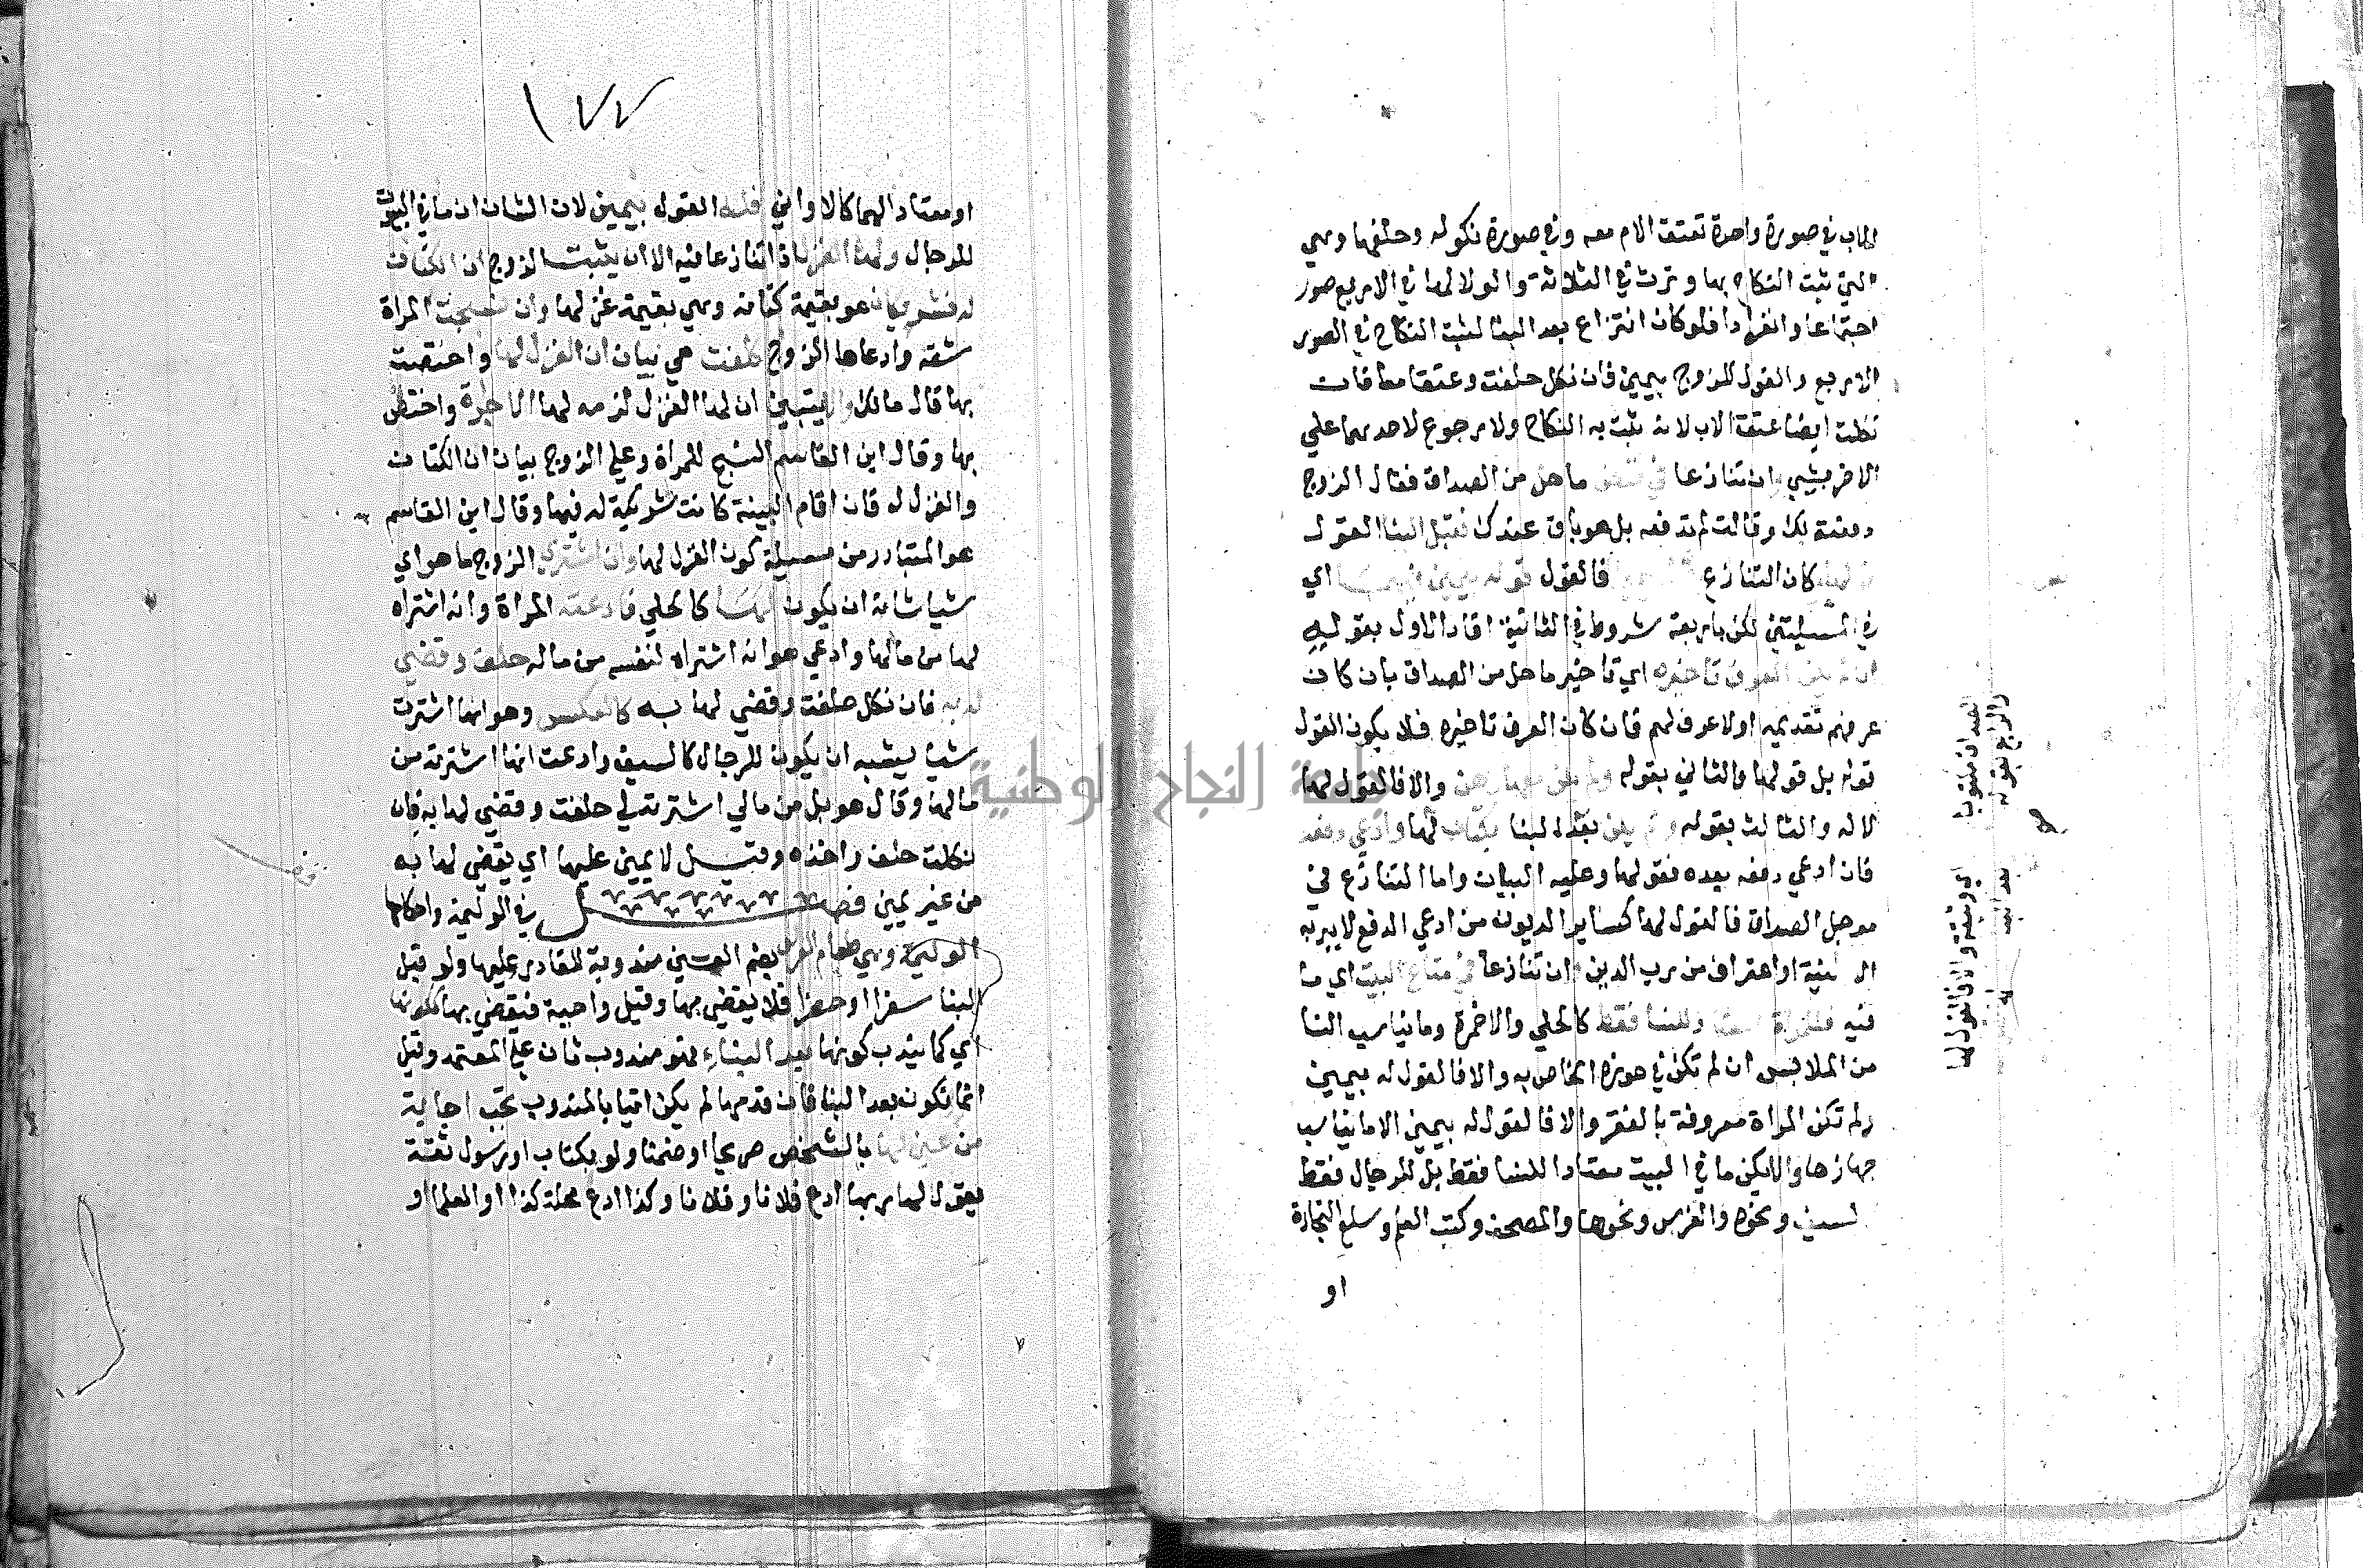 الاب في صورة واحدة تعتق الام معه وفي صورة نكوله وحلفها وهي
التي ثبت النكاح بها وترث في الثلاثة والولا لها في الاربع صور
اجتماعا وانفرادا فلو كان النزاع بعد البنا لثبت النكاح في الصور
الاربع والقول للزوج بيمين فان نكل حلفت وعتقا معا فان
نكلت ايضا عتق الاب لانه يثبت به النكاح ولا رجوع لاحدهما علي
الاخر بشي وان تنازعا في قبض ما حل من الصداق فقال الزوج
دفعته لك وقالت لم تدفعه بل هو باق عندك فقبل البنا القول
لها كان التنازع فالقول قوله بيمين فيهما اي
في المسيلتين لكن باربعة شروط في الثانية افاد الاول بقوله
ان لم يكن العرف تاخيره اي تاخير ما حل من الصداق بان كان
عرفهم تقديمه او لا عرف لهم فان كان العرف تاخيره فلا يكون القول
قوله بل قولها والثاني بقوله ولم يكن معها رهن والا فالقول لها
لا له والثالث بقوله ولم يكن بعد البنا بكتاب لها وادعي دفعه
فان ادعي دفعه بعده فقولها وعليه البيان واما التنازع في
موجل الصداق فالقول لها كساير الديون من ادعي الدفع لا يبريه
الا بينة او اعتراف من رب الدين وان تنازعا في متاع البيت اي ما
فيه فللمراة للنسا فقط كالحلي والاخمرة وما يناسب النسا
من الملابس ان لم تكن في حوزه الخاص به والا فالقول له بيمين
ولم تكن المراة معروفة بالفقر والا فالقول له بيمين الا ما يناسب
جهازها والا يكن ما في البيت معتادا للنسا فقط بل للرجال فقط
لسيف ونحوه والفرس ونحوها والمصحف وكتب العلم وسلع التجارة
او
الصداق مكتوبا
والرابع بقوله
او وثيقة والا فالقول لها
بعد البنا
جامعة النجاح الوطنية
١٧٧
او معتادا لهما كالاواني فله القول بيمين لان الشان ان ما في البيوت
للرجال ولها الغزل اذا تنازعا فيه الا ان يثبت الزوج ان الكتان
له فشريكان هو بقيمة كتانه وهي بقيمة غزلها وان نسجت المراة
شقة وادعاها الزوج كلفت هي بيان ان الغزل لها واختصت
بها قال مالك وان لم يتبين ان لها الغزل لزمه لها الاجرة واختص
بها وقال ابن القاسم النسج للمراة وعلي الزوج بيان ان الكتان
والغزل له فان اقام البينة كانت شريكة له فيها وقال ابن القاسم
هو المتبادر من مسيلة كون الغزل لها وان اشتري الزوج ما هو اي
شيا شانه ان يكون لها كالحلي فادعته المراة وانه اشتراه
لها من مالها وادعي هو انه اشتراه لنفسه من ماله حلف وقضي
له به فان نكل حلفت وقضي لها به كالعكس وهو انها اشترت
شيا يشبه ان يكون للرجال كالسيف وادعت انها اشترته من
مالها وقال هو بل من مالي اشترته لي حلفت وقضي لها به فان
نكلت حلف واخذه وقيل لا يمين عليها اي يقضي لها به
من غير يمين فصل في الوليمة واحكامها
الوليمة وهي طعام العرس بضم العين مندوبة للقادر عليها ولو قبل
البنا سفرا او حضرا فلا يقضي بها وقيل واجبة فيقضي بها ككونها
اي كما يندب كونها بعد البناء فهو مندوب ثان علي المعتمد وقيل
انما تكون بعد البنا فان قدمها لم يكن اتيا بالمندوب تجب اجابة
من عين لها بالشخص صريحا او ضمنا ولو بكتاب او رسول ثقة
يقول لها ربها ادع فلانا وفلانا وكذا ادع محلة كذا او العلما او